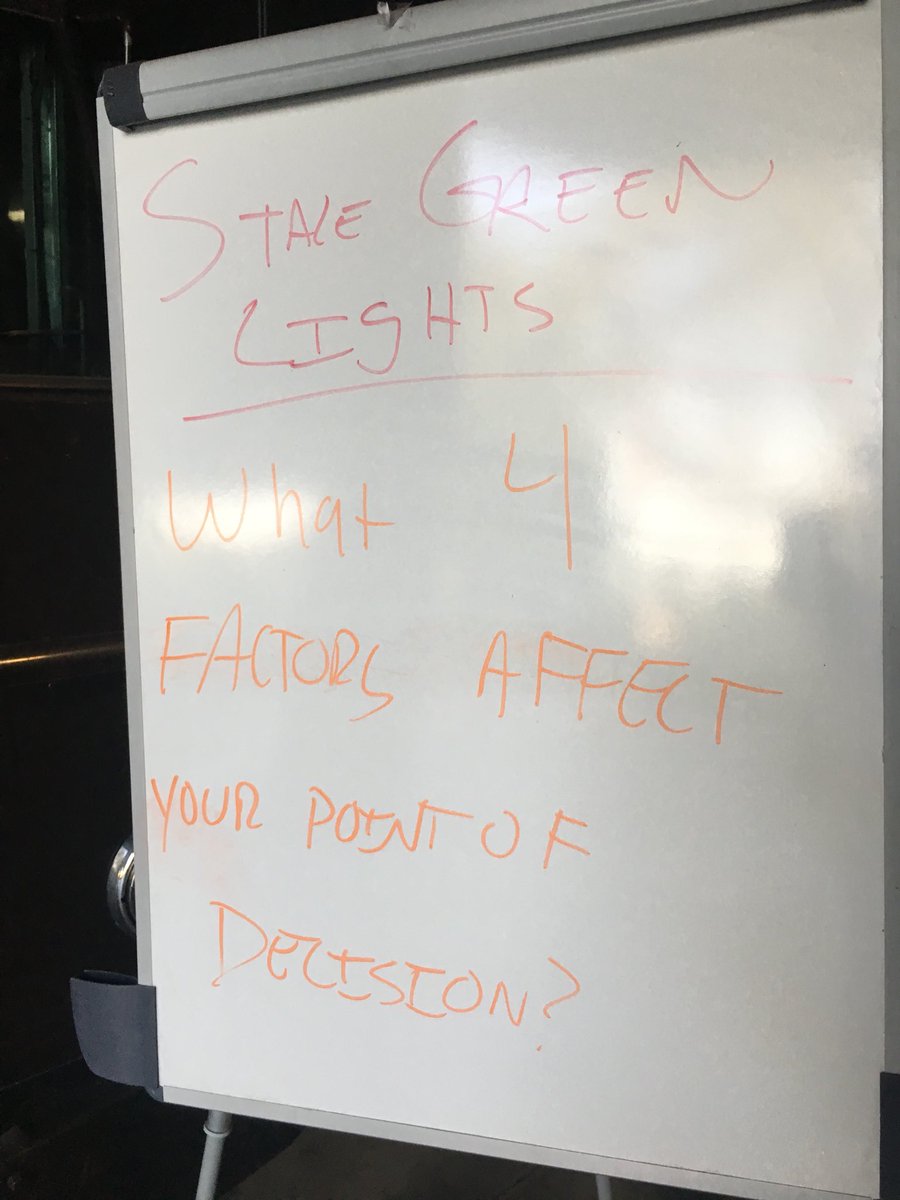 STALE GREEN
LIGHTS
What 4
FACTORS AFFECT
YOUR POINT OF
DECISION?